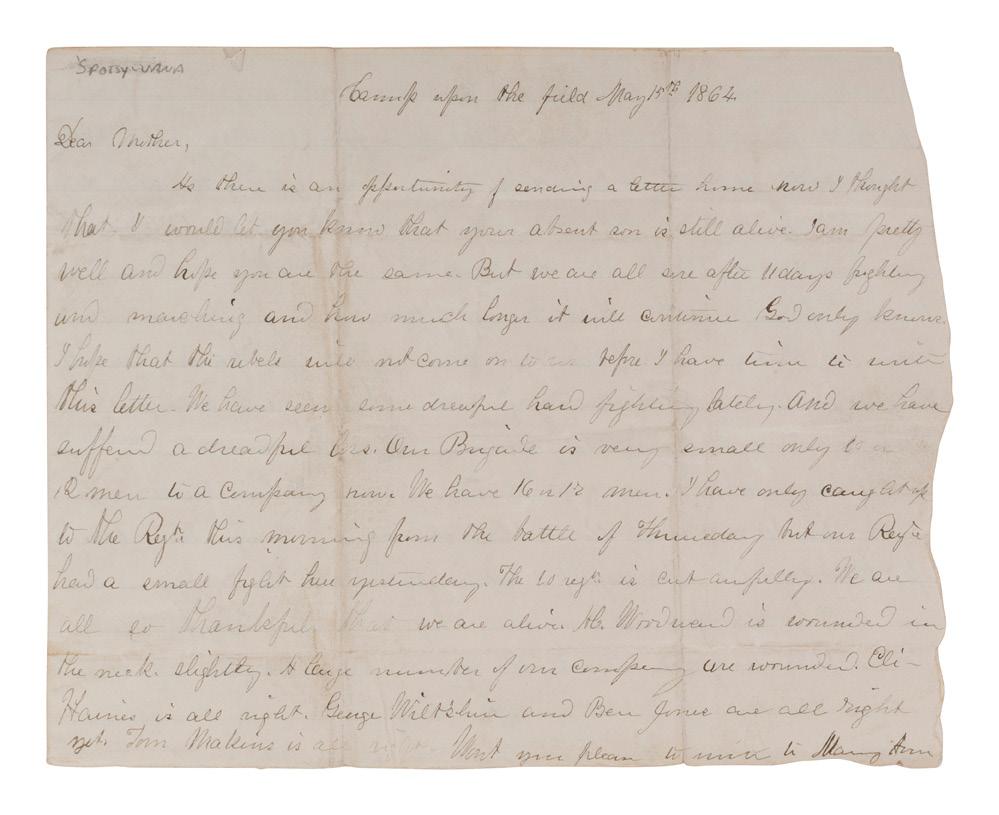 SPOTSYLVANIA
Camp upon the field May 15th 1864
Dear Mother,
As there is an opportunity of sending a letter home now I thought
that I would let you know that your absent son is still alive. I am pretty
well and hope you are the same. But we are all sore after 11 days fighting
and marching and how much longer it will continue God only knows.
I hope that the rebels will not come on to us before I have time to write
this letter. We have seen some dreaful hard fighting lately. And we have
sufferd a dreadful loss. Our Brigade is very small only 10 or
12 men to a company now. We have 16 or 18 men. I have only caught up
to the Regt. this morning from the battle of Thursday but our Regt
had a small fight here yesterday. The 10 regt. is cut awfully. We are
all so thankful that we are alive. Woodward is wounded in
the neck slightly. A large number of our company are wounded. Eli
Haines is all right. George Wiltshire and Ben Jones are all right
yet. Tom Makins is all right. Wont you please to write to Mary Ann